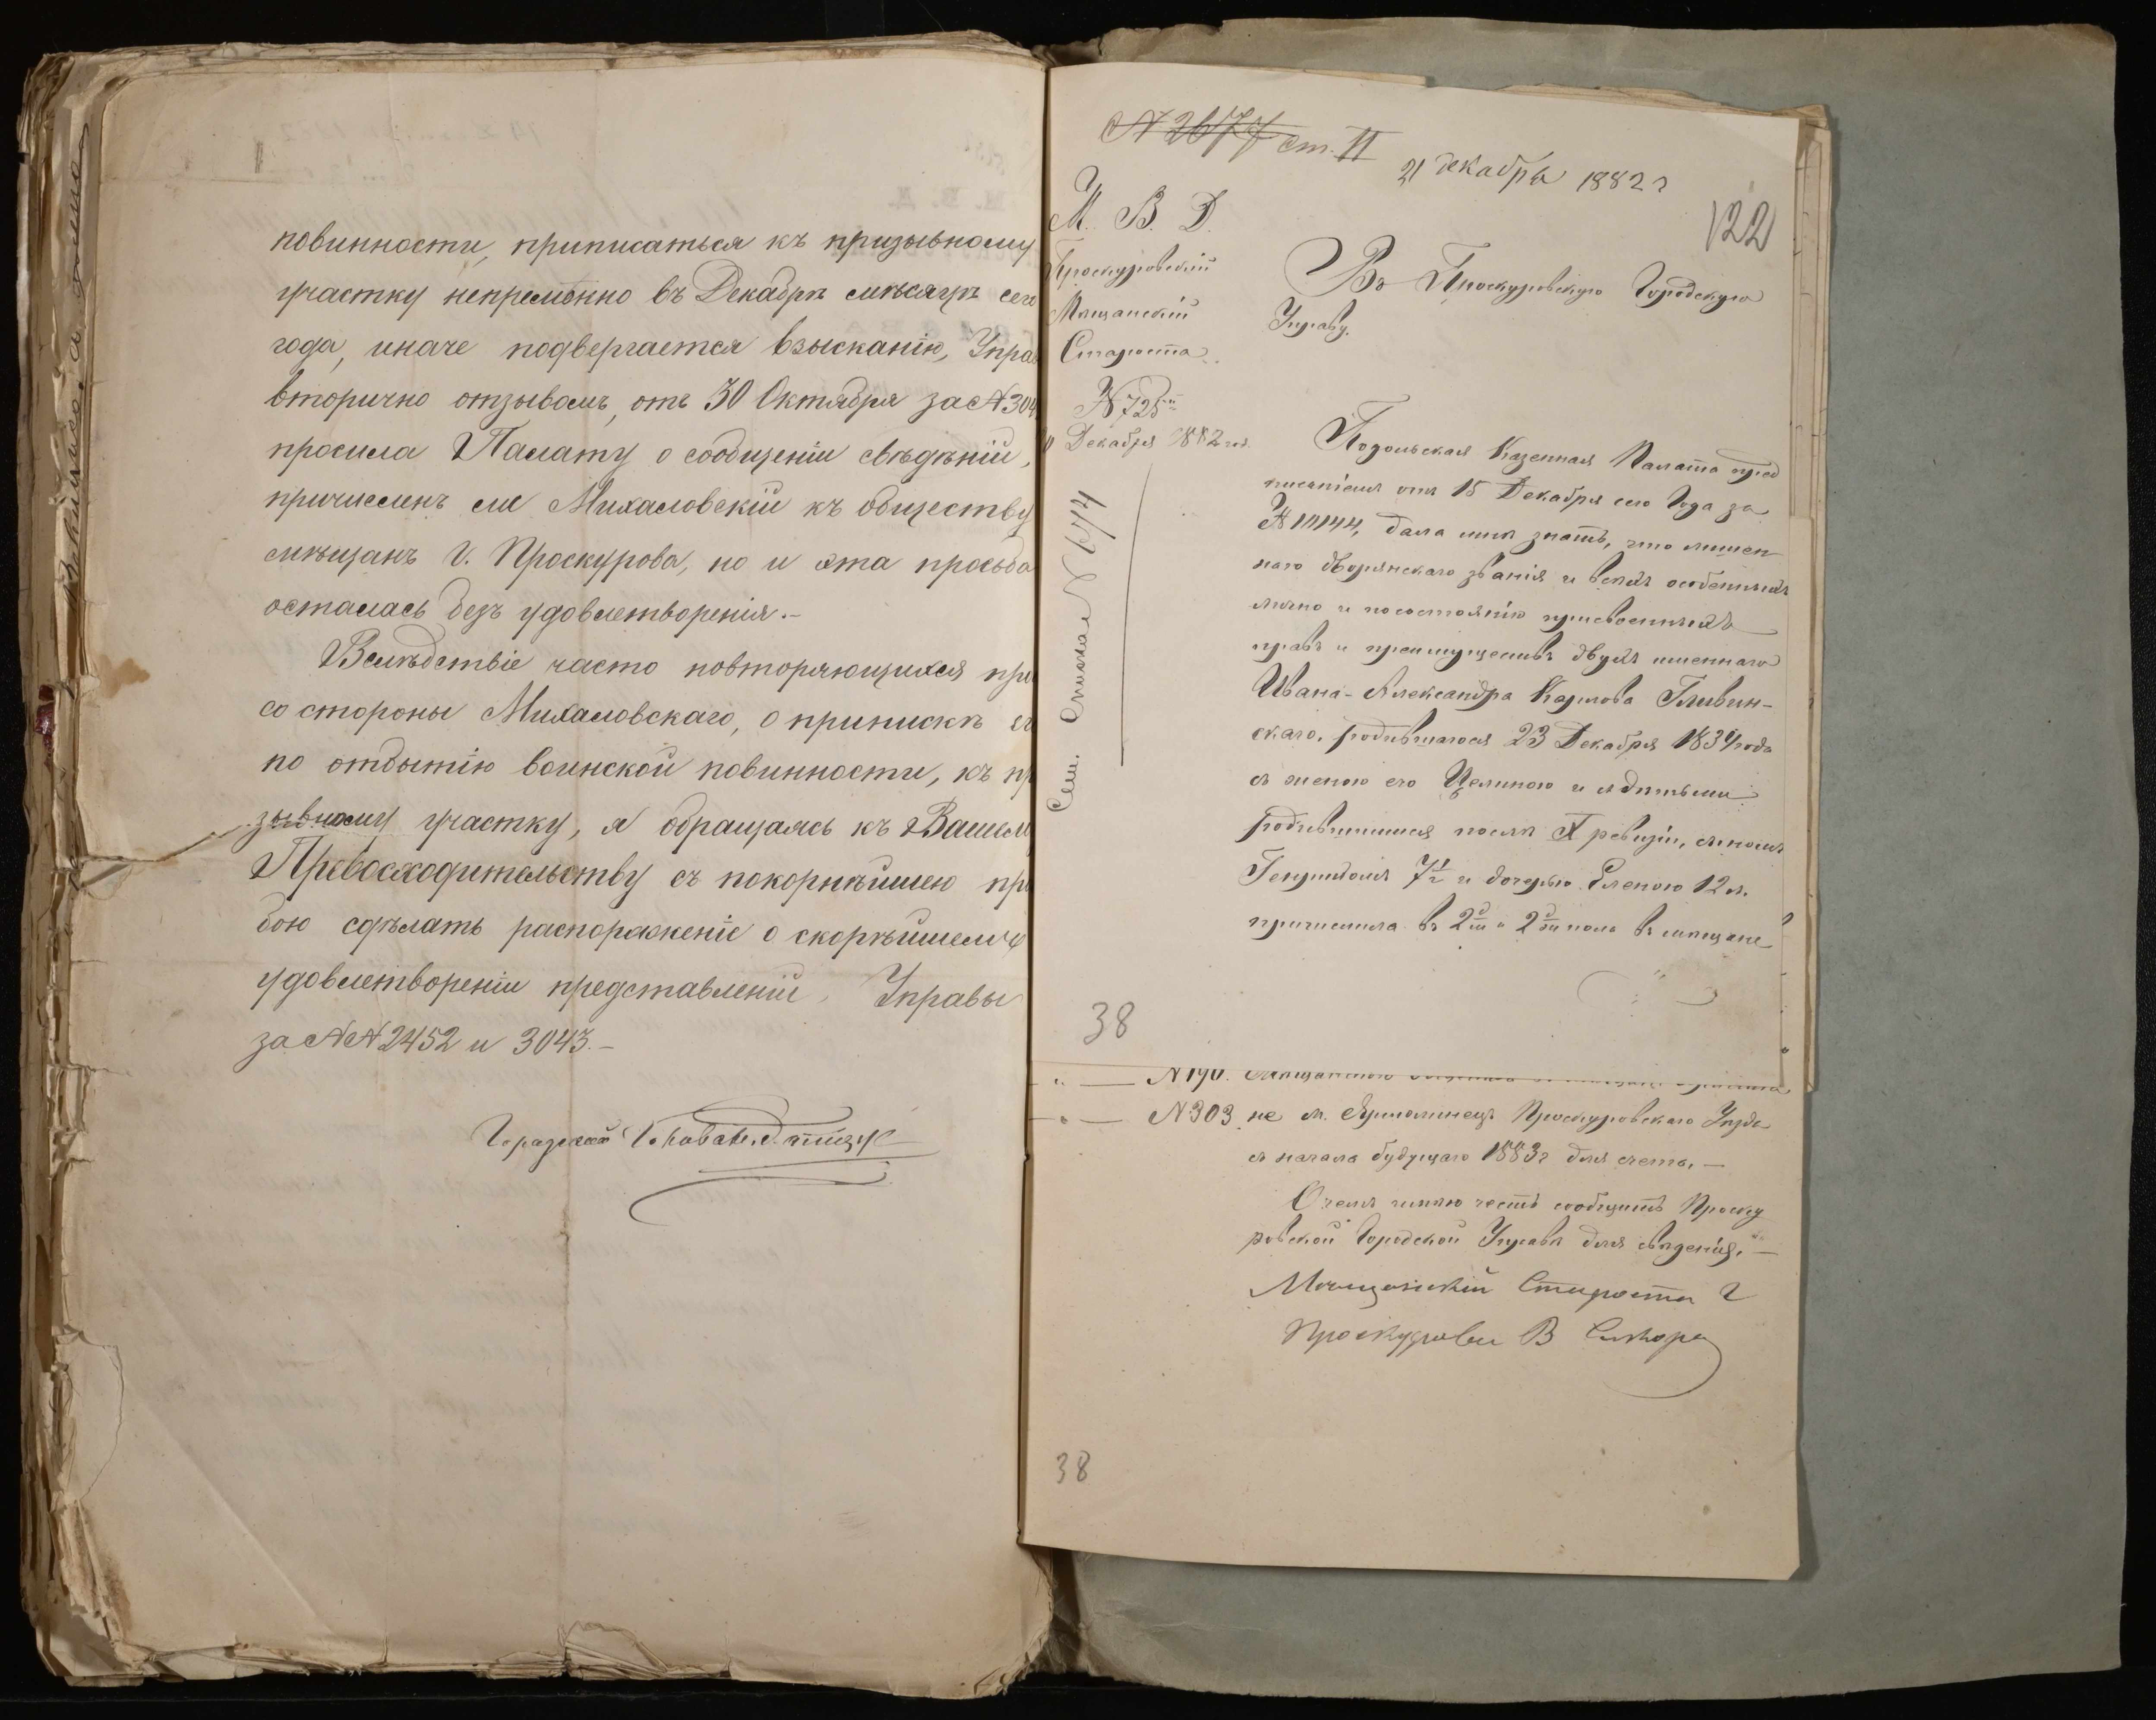 повинности, приписаться къ призывному
участку непремѣнно въ Декабрѣ мѣсяцѣ сего
года, иначе подвергается взысканію, Управ
вторично отзывомъ, отъ 30 Октября за № 304
просила Палату о сообщеніи свѣдѣній,
причисленъ ли Михаловскій къ обществу
мѣщанъ г. Проскурова, но и эта просьба
осталась безъ удовлетворенія.-
Вслѣдствіе часто повторяющихся про
со стороны Михаловскаго, о припискѣ его
по отбытію воинской повинности, къ пр
зывному участку, я обращаюсь къ Вашем
Превосходительству съ покорнѣйшею про
бою сдѣлать распоряженіе о скорѣйшемъ
удовлетвореніи представленій Управы
за №№ 2452 и 3043.-
Городской Голова
№ 2677 ст. II
21 декабря 1882 г
122
М. В. Д.
Проскуровскій
Мѣщанскій
Староста.
№ 725
Декабря 1882 год
Въ Проскуровскую Городскую
Управу.
Подольская Казенная Палата пред
писаніемъ отъ 15 Декабря сего Года за
№ 11144, дала мнѣ знать, что лишен
наго дворянскаго званія и всѣхъ особенныхъ
лично и по состоянію присвоенныхъ
правъ и преимуществъ двухъ именнаго
Ивана-Александра Казимова Гливин-
скаго, родившагося 23 Декабря 1834 года
съ женою его Целиною и дѣтьми
родившимися послѣ X ревизіи, сыномъ
Генрихомъ 7½ и дочерью Еленою 12 л.
причислила въ 2 и 2 пол. въ мѣщане
Сем. Списка № 644
38
" — № 190.
" — № 303. не м. Ярмолинецъ Проскуровскаго Уѣзда
съ начала будущаго 1883 г для счета. —
О чемъ имѣю честь сообщить Проску
ровской Городской Управѣ для свѣденія. —
Мѣщанскій Староста г
Проскурова В Сикора
38